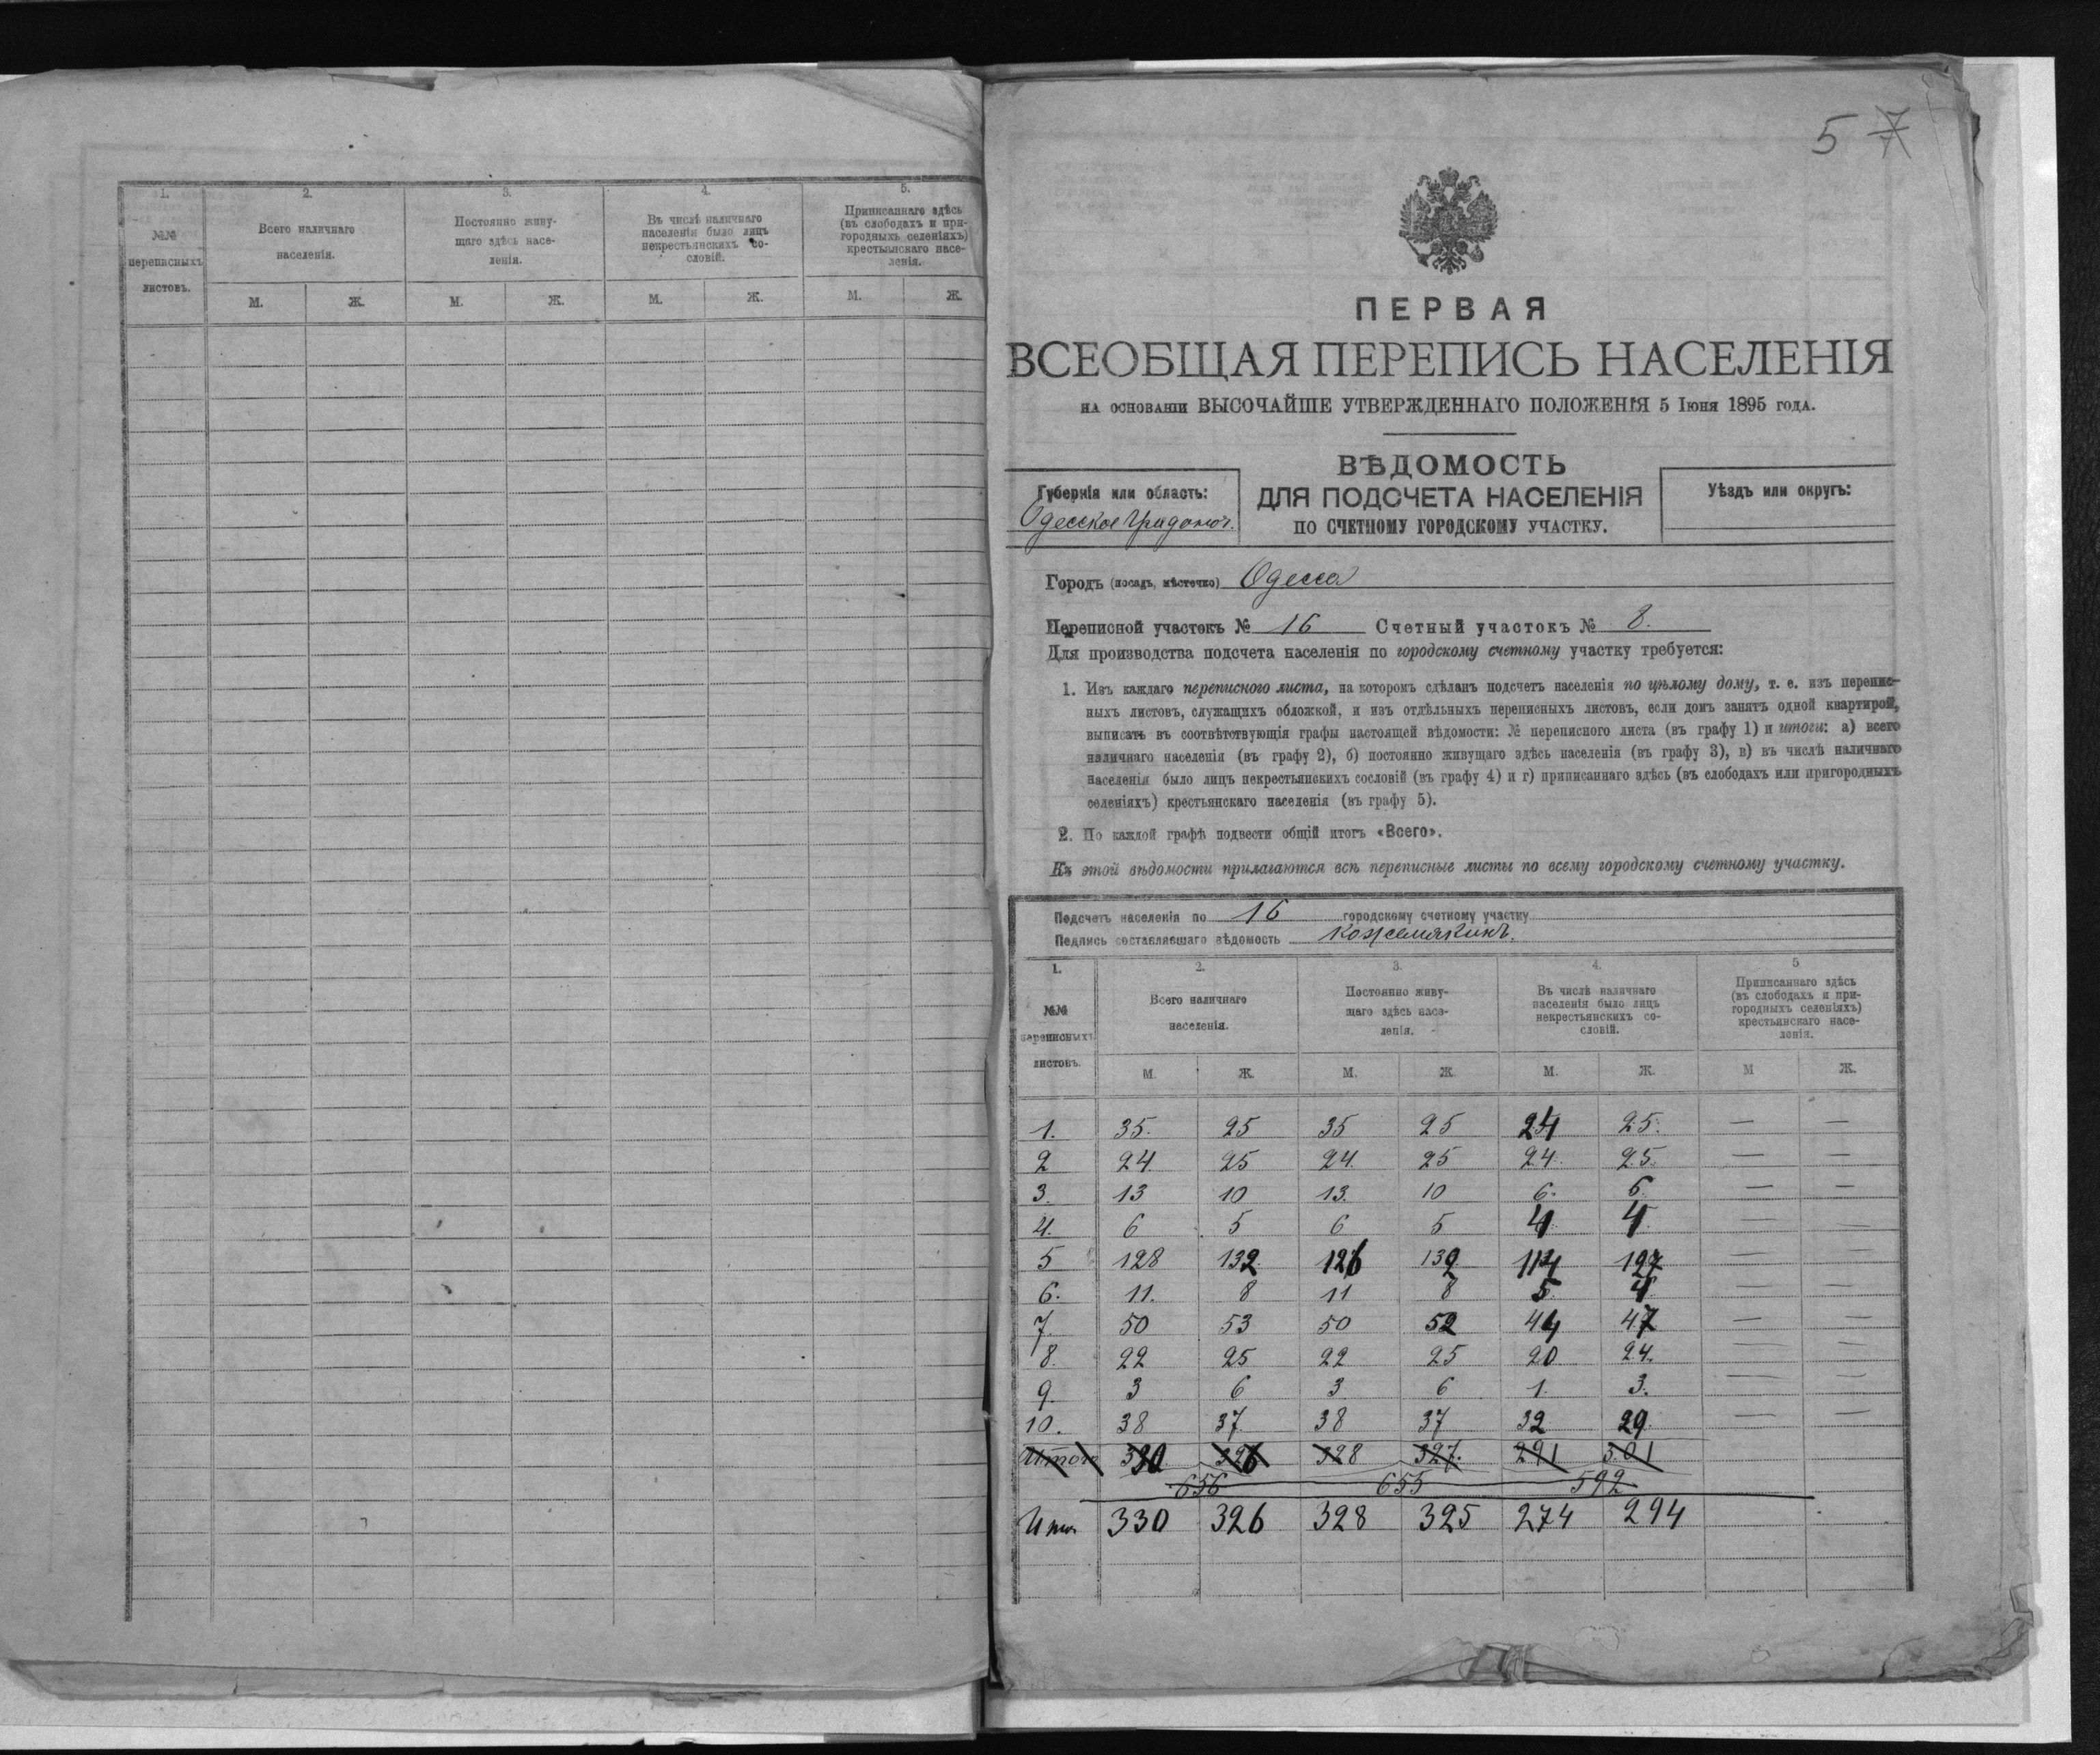 1. 2. 3. 4. 5.
№№ переписныхъ листовъ.
Всего наличнаго населенія.
Постоянно живу-
щаго здѣсь насе-
ленія.
Въ числѣ наличнаго
населенія было лицъ
некрестьянскихъ со-
словій.
Приписаннаго здѣсь
(въ слободахъ и при-
городныхъ селеніяхъ)
крестьянскаго насе-
ленія.
М. Ж. М. Ж. М. Ж. М. Ж.
5 7
ПЕРВАЯ
ВСЕОБЩАЯ ПЕРЕПИСЬ НАСЕЛЕНІЯ
НА ОСНОВАНІИ ВЫСОЧАЙШЕ УТВЕРЖДЕННАГО ПОЛОЖЕНІЯ 5 Іюня 1895 ГОДА.
ВѢДОМОСТЬ
ДЛЯ ПОДСЧЕТА НАСЕЛЕНІЯ
ПО СЧЕТНОМУ ГОРОДСКОМУ УЧАСТКУ.
Губернія или область:
Одесское Градонач.
Уѣздъ или округъ:
Городъ (посадъ, мѣстечко) Одесса
Переписной участокъ № 16 Счетный участокъ № 8.
Для производства подсчета населенія по городскому счетному участку требуется:
1. Изъ каждаго переписного листа, на которомъ сдѣланъ подсчетъ населенія по цѣлому дому, т. е. изъ перепис-
ныхъ листовъ, служащихъ обложкой, и изъ отдѣльныхъ переписныхъ листовъ, если домъ занятъ одной квартирой,
выписать въ соотвѣтствующія графы настоящей вѣдомости: № переписного листа (въ графу 1) и итоги: а) всего
наличнаго населенія (въ графу 2), б) постоянно живущаго здѣсь населенія (въ графу 3), в) въ числѣ наличнаго
населенія было лицъ некрестьянскихъ сословій (въ графу 4) и г) приписаннаго здѣсь (въ слободахъ или пригородныхъ
селеніяхъ) крестьянскаго населенія (въ графу 5).
2. По каждой графѣ подвести общій итогъ «Всего».
Къ этой вѣдомости прилагаются всѣ переписные листы по всему городскому счетному участку.
Подсчетъ населенія по 16 городскому счетному участку
Подпись составлявшаго вѣдомость Кожемякинъ.
1. 2. 3. 4. 5
№№ переписныхъ листовъ.
Всего наличнаго населенія.
Постоянно живу-
щаго здѣсь насе-
ленія.
Въ числѣ наличнаго
населенія было лицъ
некрестьянскихъ со-
словій.
Приписаннаго здѣсь
(въ слободахъ и при-
городныхъ селеніяхъ)
крестьянскаго насе-
ленія.
М. Ж. М. Ж. М. Ж. М Ж.
1. 35. 25 35 25 24 25. — —
2 24. 25 24. 25 24. 25. — —
3. 13 10 13. 10 6. 6. — —
4. 6 5 6 5 4. 4. — —
5 128 132. 126 132 114 127 — —
6. 11. 8 11 8 5. 4. — —
7. 50 53 50 52 44 47 — —
8. 22 25 22 25 20 24. — —
9. 3 6 3 6 1. 3. — —
10. 38 37 38 37 32 29. — —
Итого 330 326 328 327. 291 301
656 655 592
Итог 330 326 328 325 274 294